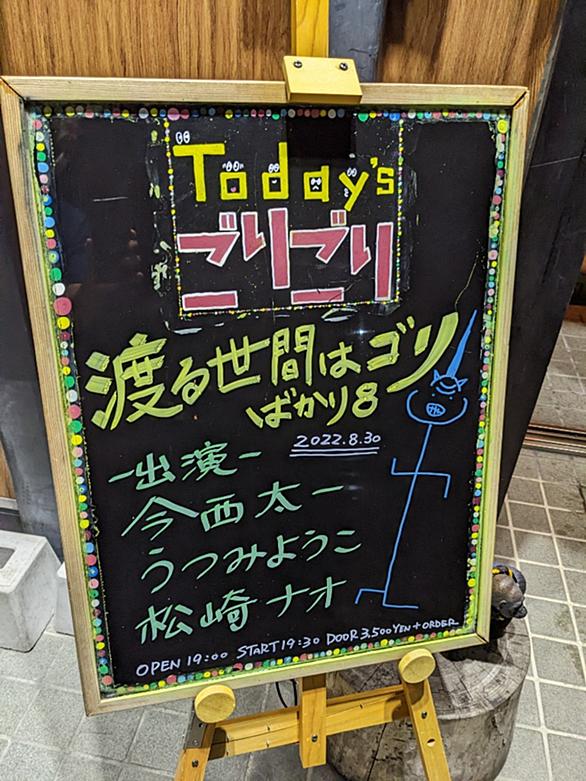 Today's
ごりごり
渡る世間はゴリ
ばかり8
2022.8.30
-出演-
今西太一
うつみようこ
松崎ナオ
OPEN 19:00 START 19:30 DOOR 3,500YEN+ORDER